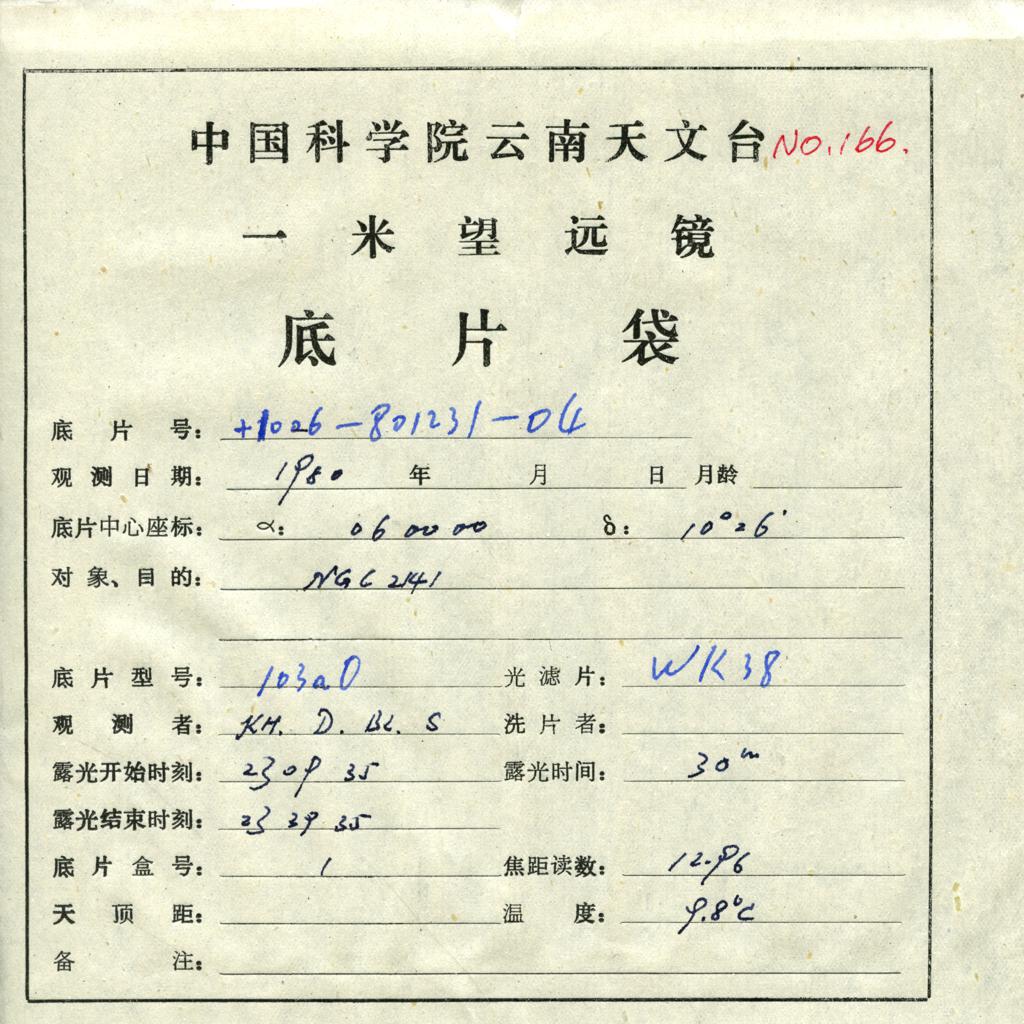 中国科学院云南天文台 NO.166.
一米望远镜
底片袋
底片号: +1026-801231-04
观测日期: 1980 年 月 日 月龄
底片中心座标: α: 06 00 00 δ: 10°26'
对象、目的: NGC 2141
底片型号: 103aO 光滤片: WK38
观测者: KH. D. BL. S 洗片者:
露光开始时刻: 23 09 35 露光时间: 30m
露光结束时刻: 23 39 35
底片盒号: 1 焦距读数: 12.96
天顶距: 温度: 9.8°C
备注: